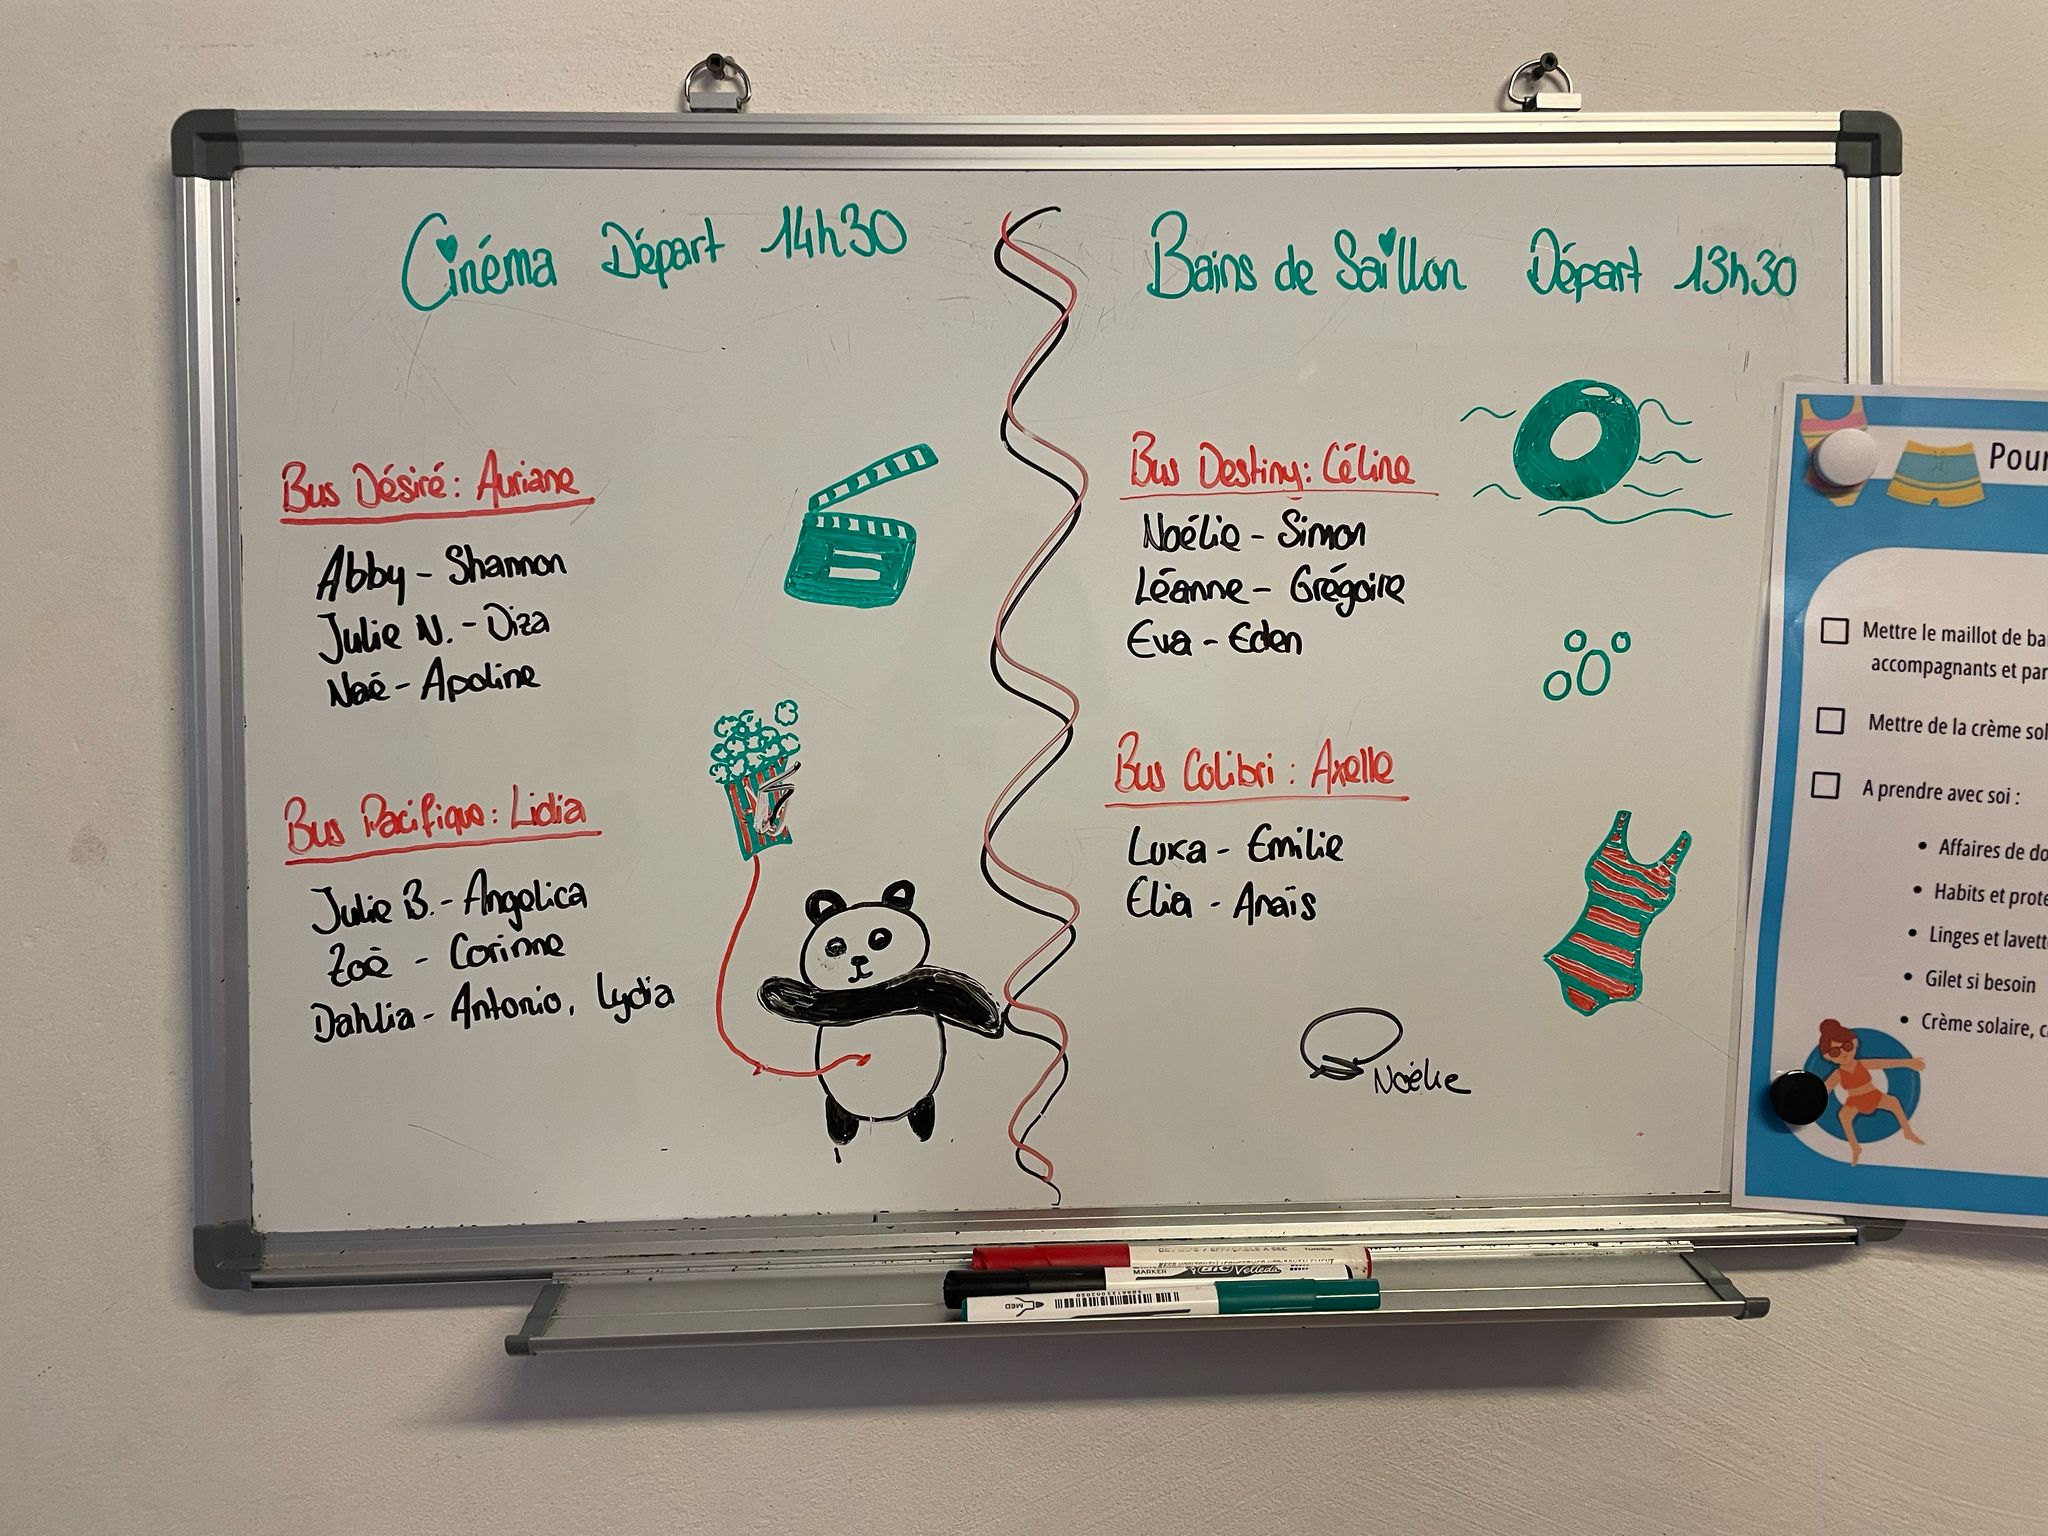 Cinéma Départ 14h30
Bus Désiré : Auriane
Abby - Shannon
Julie N. - Diza
Noé - Apoline
Bus Pacifique : Lidia
Julie B. - Angelica
Zoé - Corinne
Dahlia - Antonio, Lydia
Bains de Saillon Départ 13h30
Bus Destiny : Céline
Noélie - Simon
Léanne - Grégoire
Eva - Eden
Bus Colibri : Axelle
Luka - Emilie
Elia - Anaïs
Noélie
Pour
Mettre le maillot de ba
accompagnants et par
Mettre de la crème sol
A prendre avec soi :
• Affaires de do
• Habits et prote
• Linges et lavett
• Gilet si besoin
• Crème solaire, c
MARKER BIC Velleda
MED